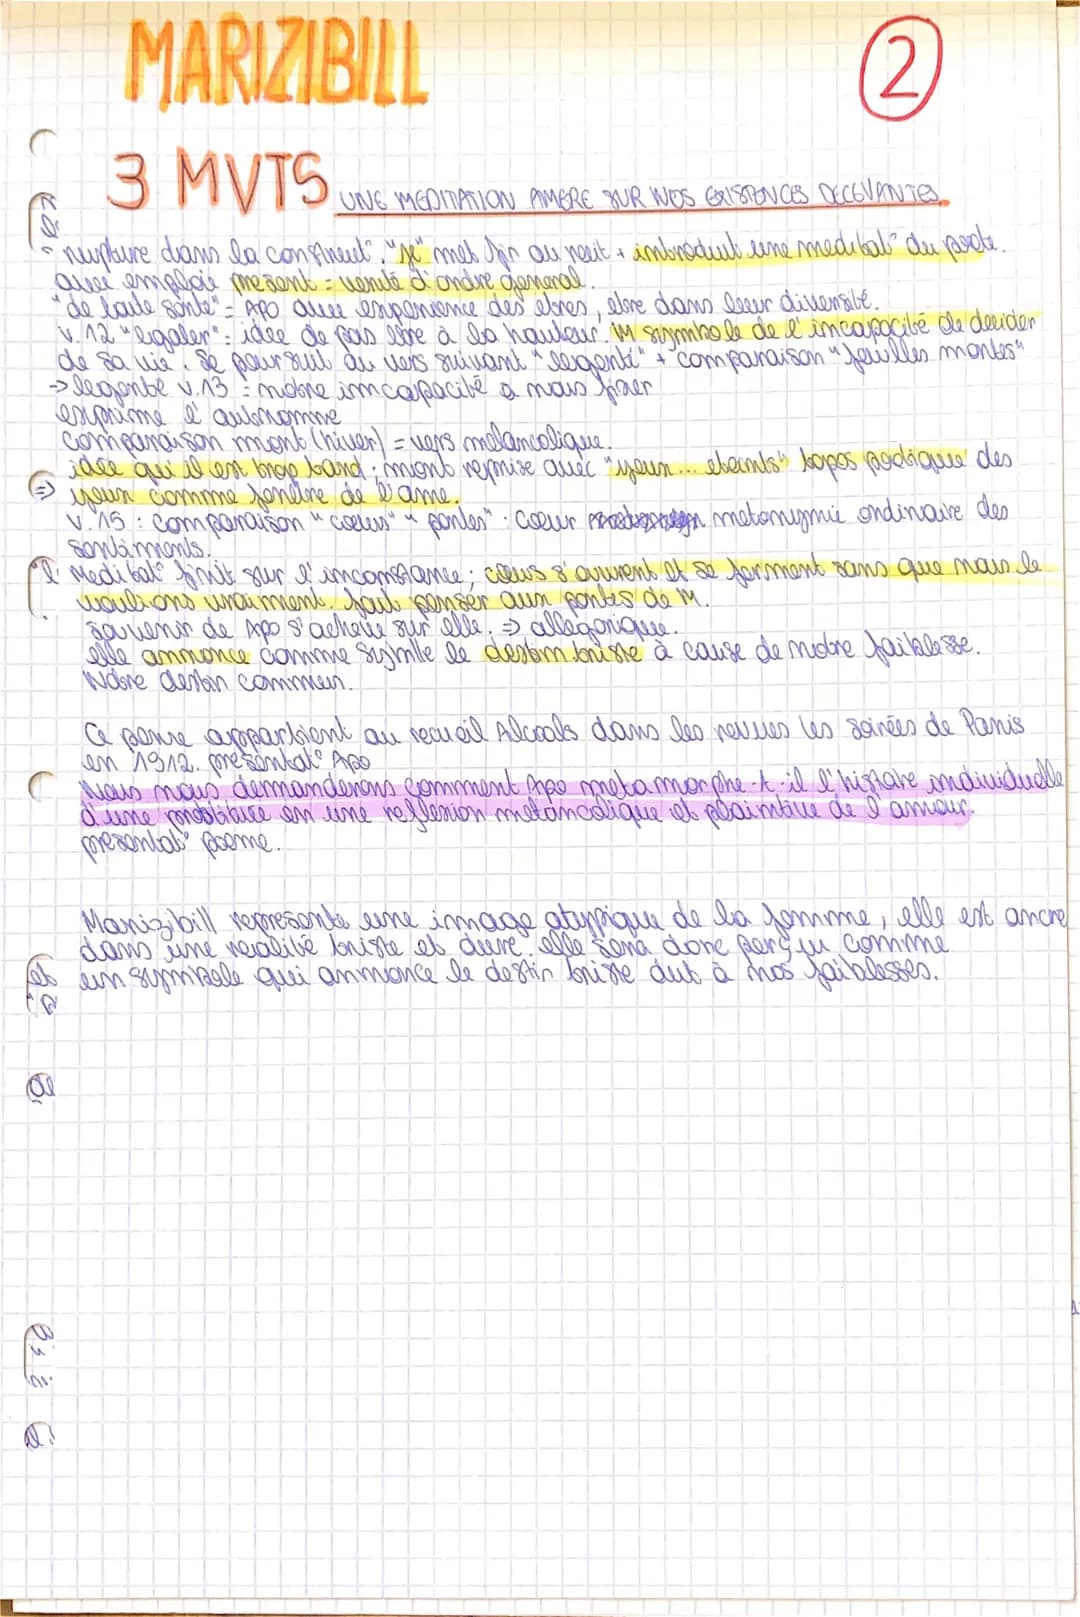 MARIZIBILL
2
3 MVTS UNE MEDITATION AMERE SUR NOS EXISTENCES DECEVANTES.
- rupture dans la "je" met fin au recit + introduit une meditat° du poete.
avec emploie present = verité d'ordre general.
"de toute sorte" = Apo avec experience des êtres, etre dans leur diversité.
v.12 "egaler" : idee de pas etre à la hauteur. M symbole de l'incapacité de decider
de sa vie. Se poursuit au vers suivant + comparaison "feuilles mortes"
-> v.13 : notre incapacité a nous fixer
exprime l'automne
comparaison mort (hiver) = vers melancolique.
idée qu'il est trop tard ; mort reprise avec "yeux ... eteints" topos poétique des
=> yeux comme fenêtre de l'ame.
v.15 : comparaison "coeur" "portes" : coeur metonymie ordinaire des
sentiments.
Meditat° finit sur l'inconstance ; cœurs s'ouvrent et se ferment sans que nous le
voulions vraiment. fait penser aux portes de M.
souvenir de Apo s'acheve sur elle. => allegorique.
elle annonce comme le destin triste à cause de notre faiblesse.
Notre destin commun.
Ce appartient au recueil Alcools dans les revues les soirées de Paris
en 1912. presentat° Apo
Nous nous demanderons comment Apo metamorphe-t-il l'histoire individuelle
d'une prostituée en une reflexion melancolique et plaintive de l'amour.
presentat° poeme.
Marizibill represente une image atypique de la femme, elle est ancre
dans une realité triste et dure. elle sera donc perçu comme
un symbole qui annonce le destin triste dut à nos faiblesses.